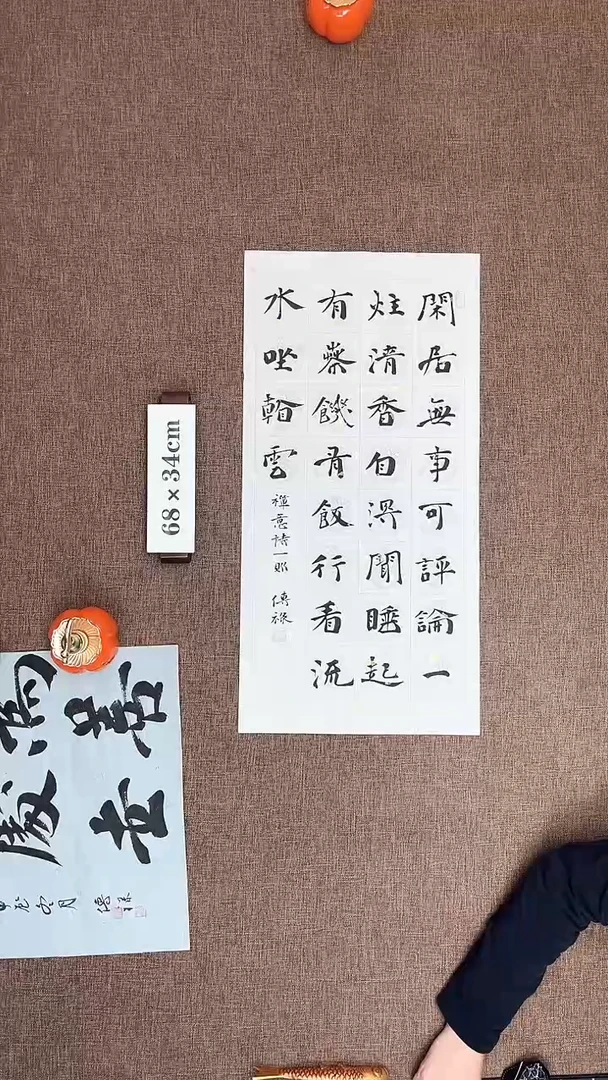 閑居無事可評論一
炷清香自得聞睡起
有茶饑有飯行看流
水坐看雲
禪意詩一則 傳祿
68×34cm